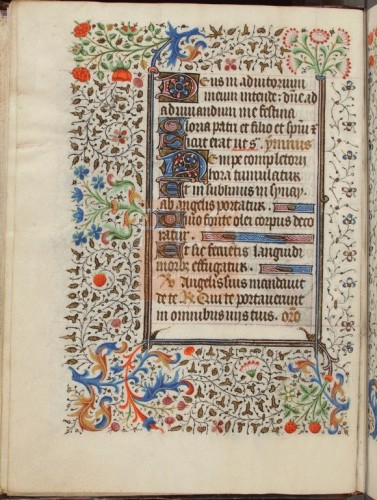 Deus in adiutorium
meum intende: dne ad
adiuuandum me festina
Gloria patri et filio et spiu z
Sicut erat ut sͣ. ymnus
Hempe completorij
hora tumulatur
Et in sublimis in synay.
ab angelis portatur.
Quo fonte olei corpus deco
ratur.
Et sic feruens languidi
morbi effugatur.
V Angelis suis mandauit
de te. R Qui te portauerunt
in omnibus uijs tuis. oro